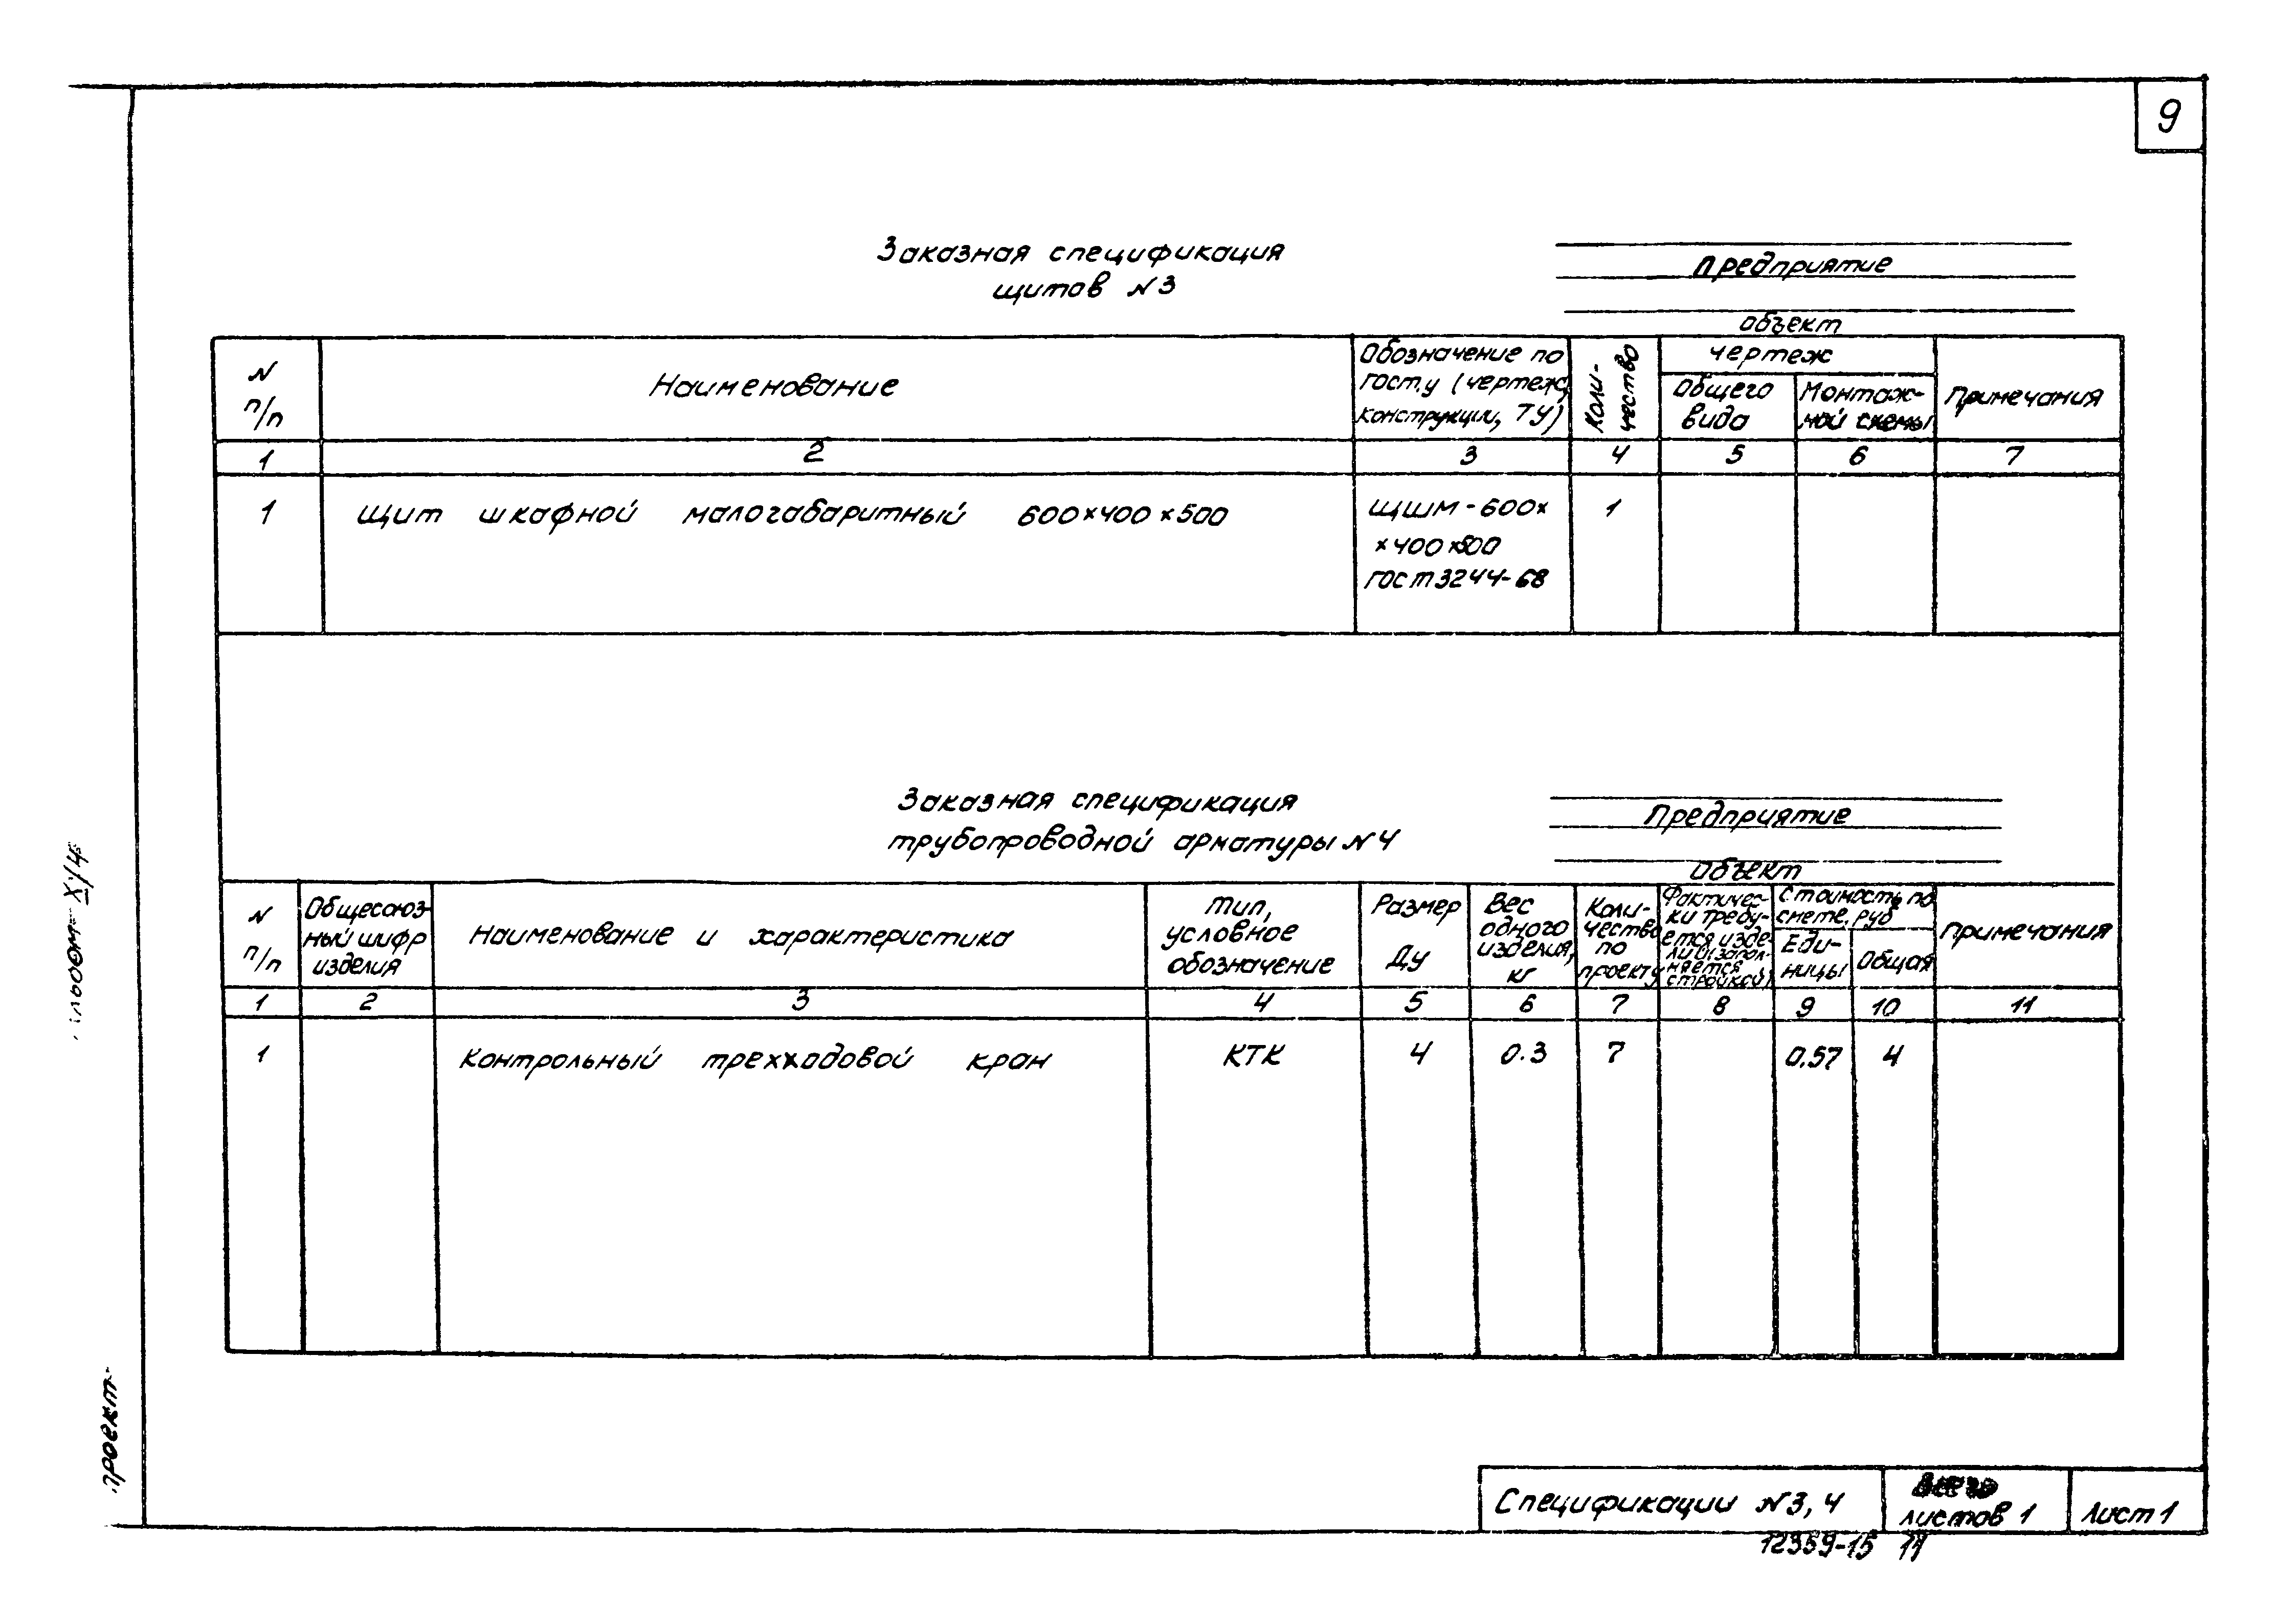 9
Заказная спецификация
щитов N3
Предприятие
объект
N
п/п
Наименование
Обозначение по
госту (чертеж,
конструкции, ТУ)
Коли-
чество
чертеж
Общего
вида
Монтаж-
ной схемы
Примечания
1 2 3 4 5 6 7
1 Щит шкафной малогабаритный 600×400×500 ЩШМ-600× 1
×400×500
гост 3244-68
Заказная спецификация
трубопроводной арматуры N4
Предприятие
объект
N
п/п
Общесоюз-
ный шифр
изделия
Наименование и характеристика
Тип,
условное
обозначение
Размер
Ду
Вес
одного
изделия,
кг
Коли-
чество
по
проекту
Фактичес-
ки требу-
ется изде-
лий (запол-
няется
стройкой)
Стоимость по
смете, руб
Еди-
ницы
Общая
примечания
1 2 3 4 5 6 7 8 9 10 11
1 Контрольный трехходовой кран КТК 4 0.3 7 0,57 4
X/4
проект
Спецификации N3,4
Всего
листов 1
Лист 1
12359-15 11